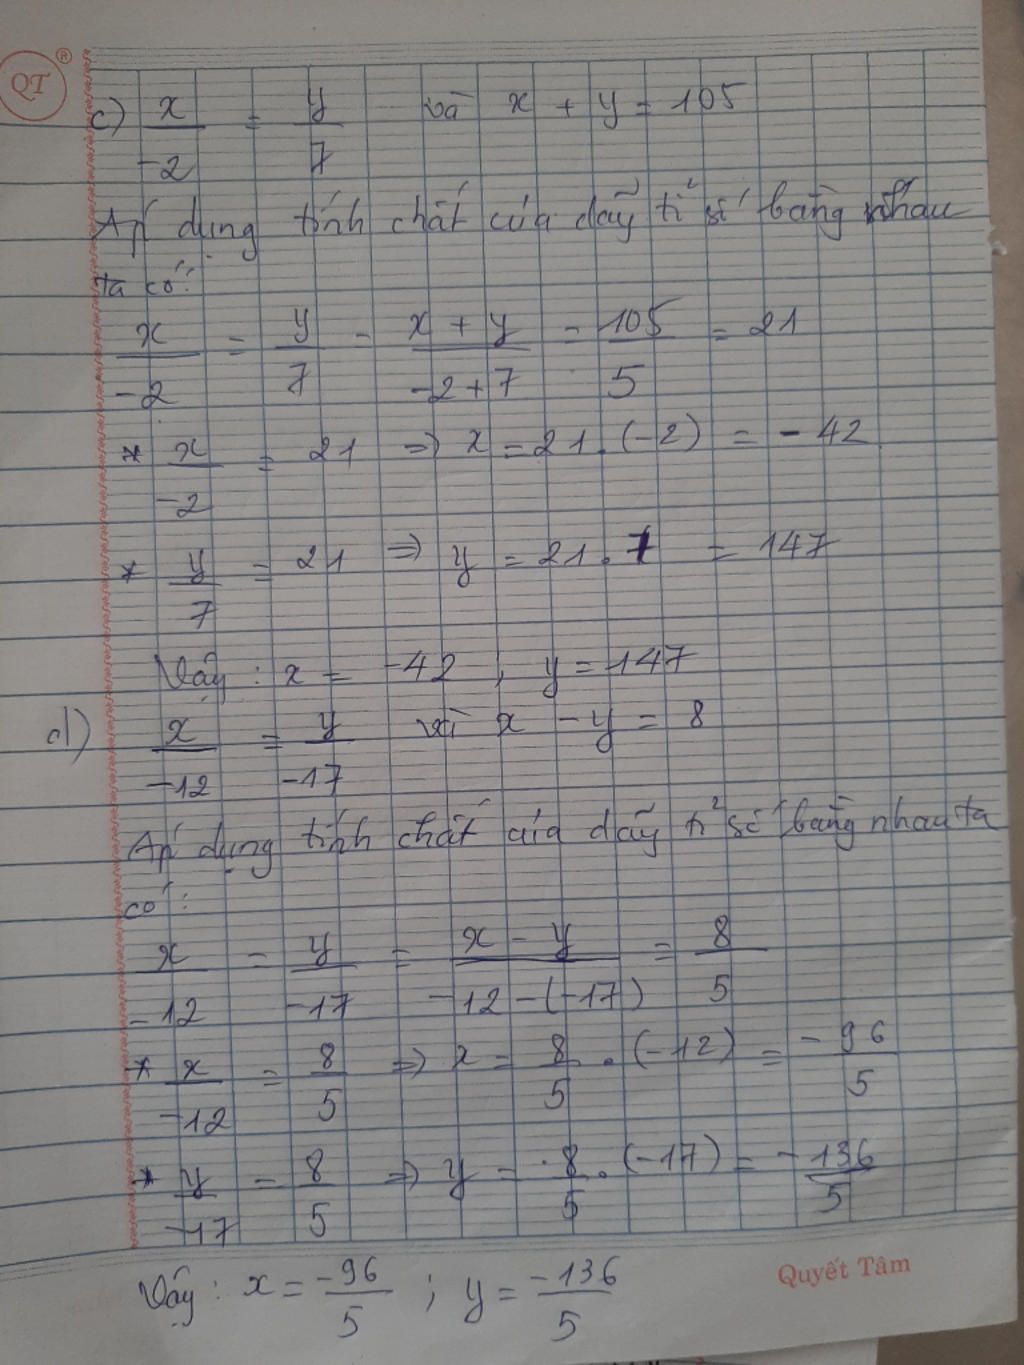 QT ®
c) x/-2 = y/7 và x + y = 105
Áp dụng tính chất của dãy tỉ số bằng nhau
ta có:
x/-2 = y/7 = x + y/-2 + 7 = 105/5 = 21
* x/-2 = 21 => x = 21 . (-2) = -42
* y/7 = 21 => y = 21 . 7 = 147
Vậy : x = -42 ; y = 147
d) x/-12 = y/-17 và x - y = 8
Áp dụng tính chất của dãy tỉ số bằng nhau ta
có :
x/-12 = y/-17 = x - y/-12 - (-17) = 8/5
* x/-12 = 8/5 => x = 8/5 . (-12) = -96/5
* y/-17 = 8/5 => y = 8/5 . (-17) = -136/5
Quyết Tâm
Vậy : x = -96/5 ; y = -136/5